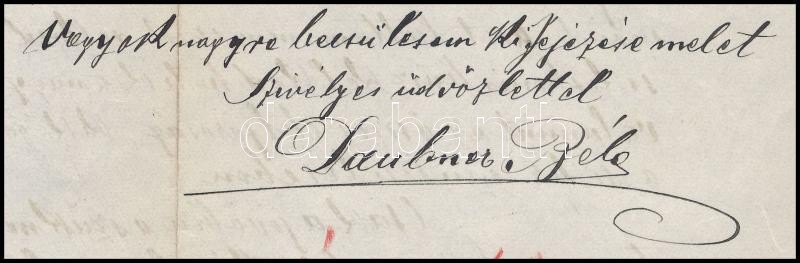 Vagyok nagyre becsülésem kifejezése melet
Szivélyes üdvözlettel
darabanth.com
Daubner Béla